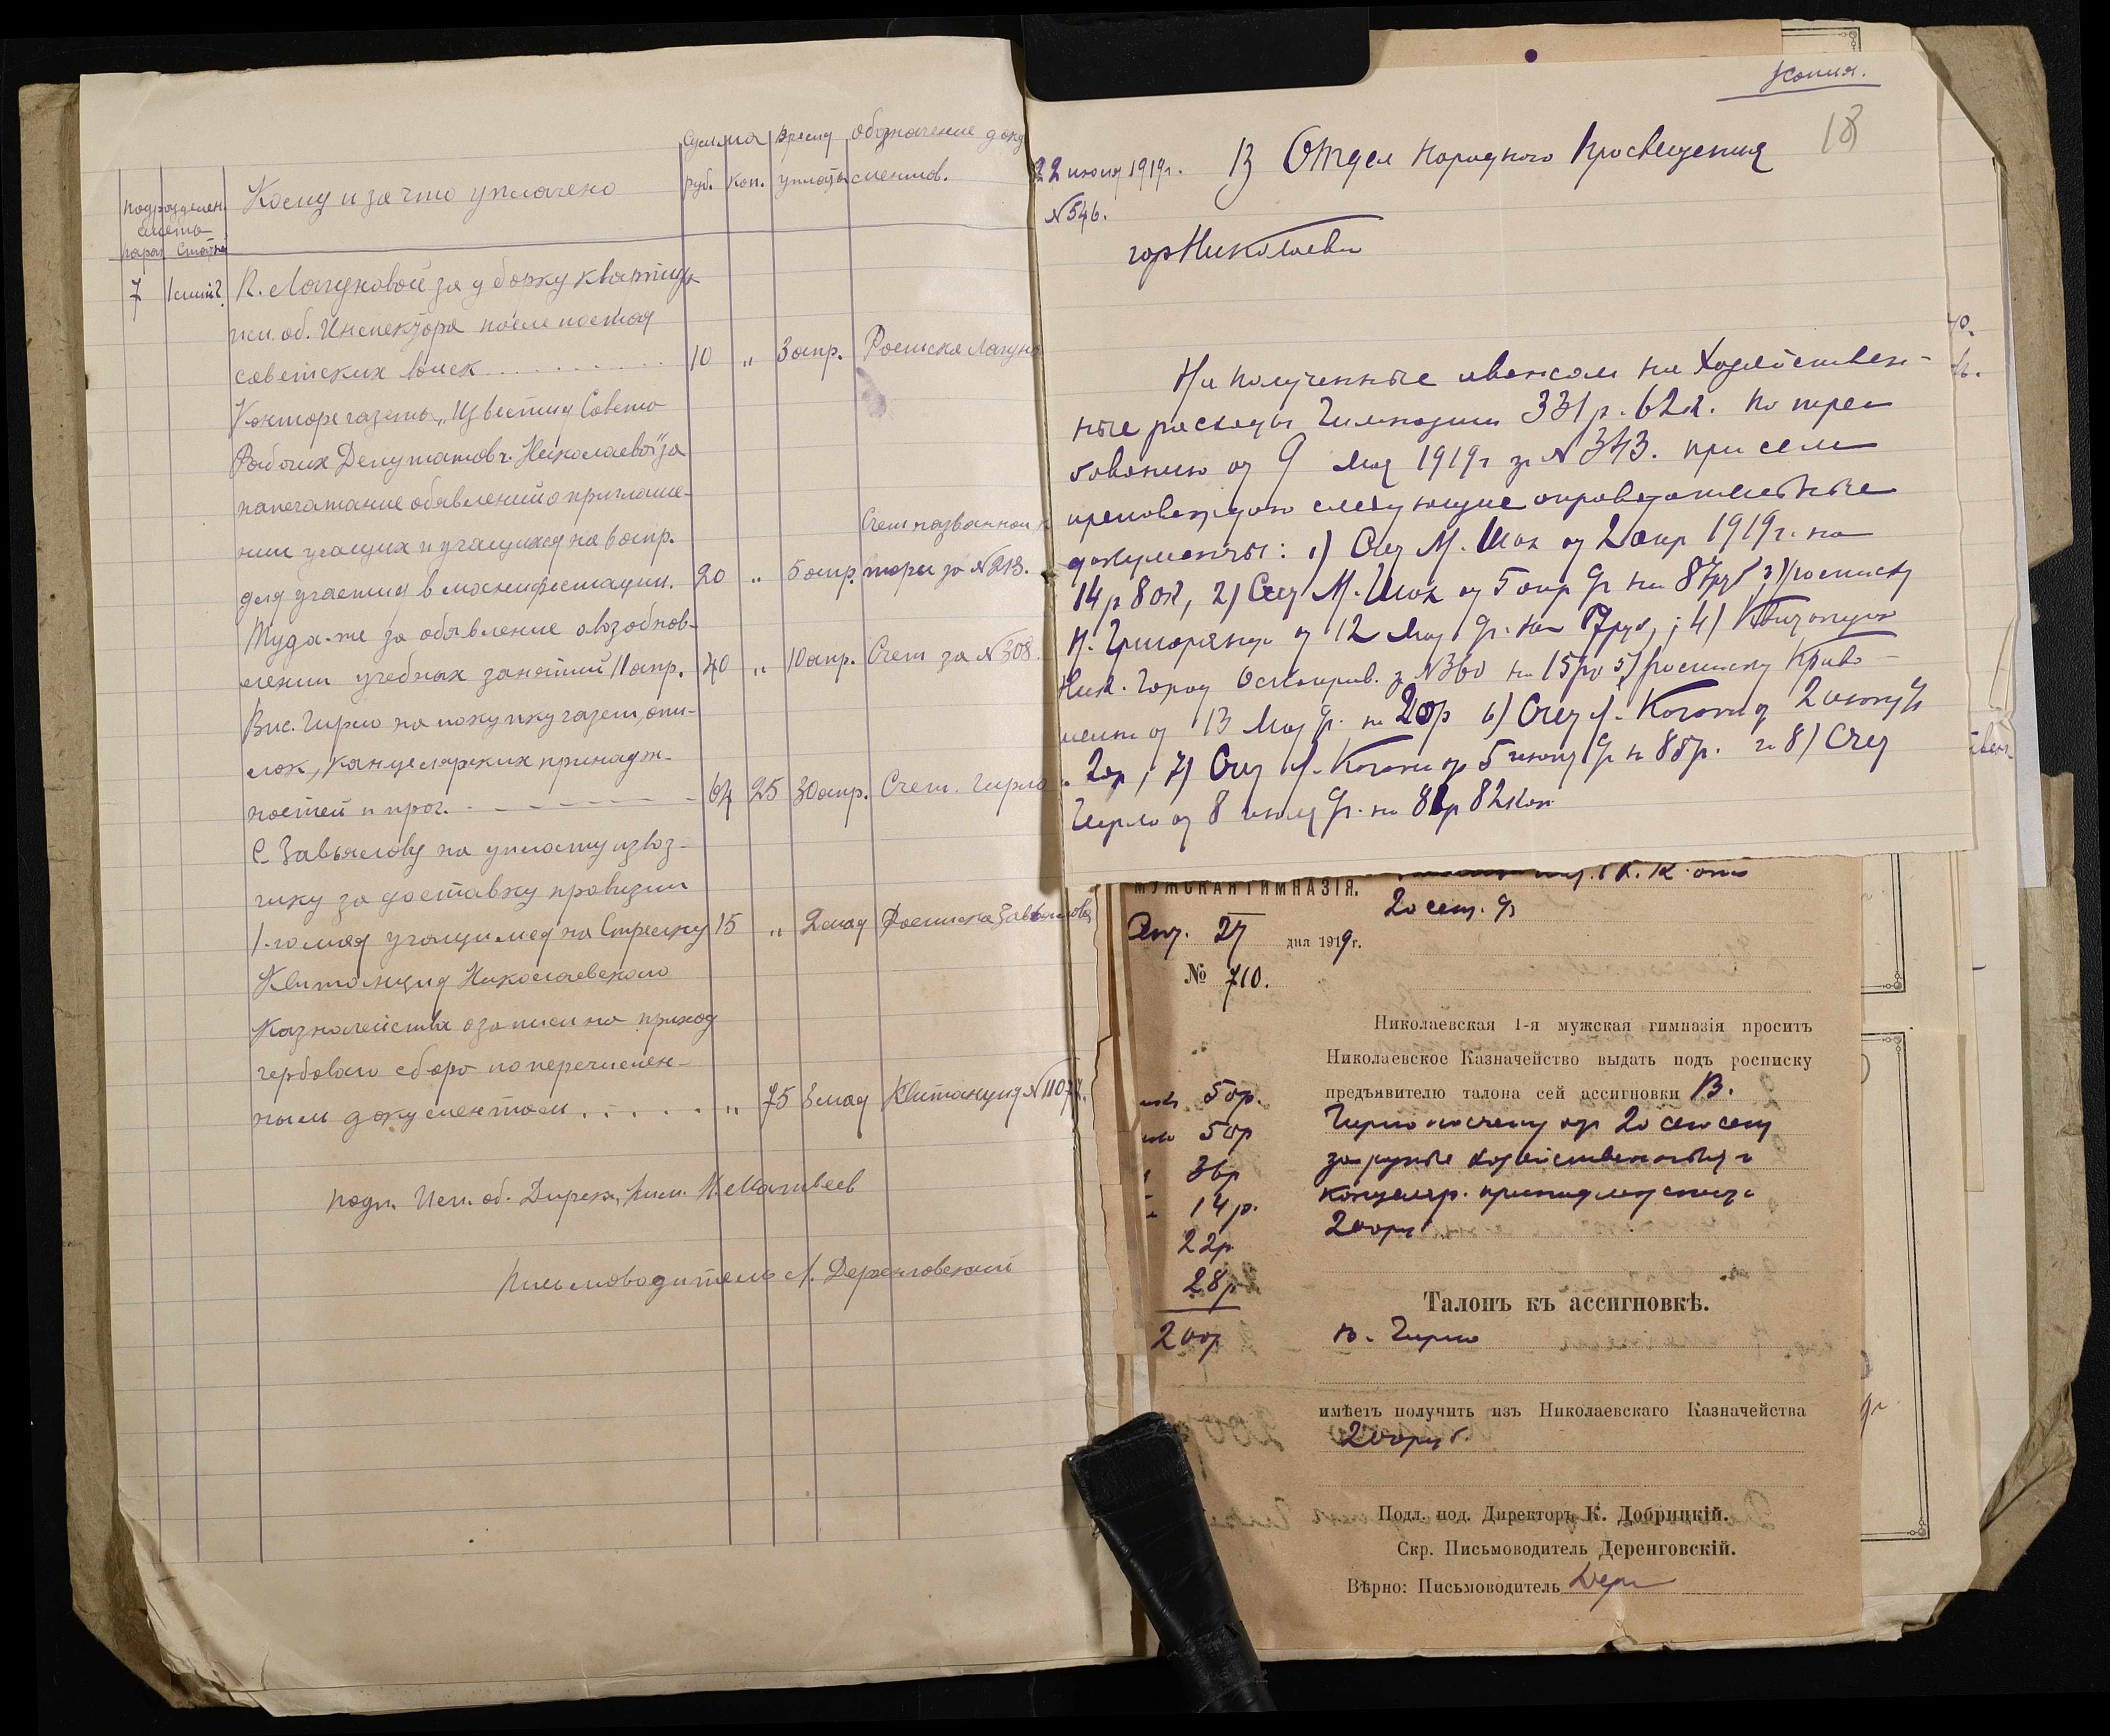 Подразделен. сметы
парагр. Статья
Кому и за что уплачено
Сумма
руб. коп.
Время уплаты
Обозначение документов.
7 1 К. Лагуновой за уборку квартиры
исп. об. Инспектора после постоя
советских войск . . . . . . . . . . 10 „ 3 апр. Росписка Лагуно
Конторе газеты „Известия Совета
Рабочих Депутатов г. Николаева" за
напечатание объявлений о приглаше-
нии учащих и учащихся на 6 апр.
Счет названной
для участия в манифестации. 20 „ 5 апр. торы за № 213.
Туда-же за объявление о возобнов-
лении учебных занятий 11 апр. 40 „ 10 апр. Счет за № 308.
Вас. Гирло на покупку газет, опи-
лок, канцелярских принадж-
ностей и проч. - - - - - - - 64 25 30 апр. Счет. Гирло
С. Завьялову на уплату извоз-
чику за доставку провизии
1-го мая учащимся на Стрелку 15 „ 2 мая Росписка Завьялова
Квитанция Николаевского
Казначейства о записи на приход
гербового сбора по перечислен-
ным документам . . . . . . „ 75 8 мая Квитанция № 11077.
подл. Исп. об. Дирек. Гим. Н. Матвеев
Письмоводитель А. Деренговский
Копия.
18
22 июня 1919 г.
В Отдел Народного Просвещения
№ 546.
гор Николаева
На полученные авансом на Хозяйствен-
ные расходы Гимназии 331 р. 62 к. по тре
бованию от 9 Мая 1919 г за № 343. при сем
преповождаю следующие оправдательные
документы: 1) Счет М. Шах от 2 апр 1919 г. на
14 р 80 к, 2) Счет М. Шах от 5 апр с/г на 87 руб 3) росписку
Н. Григорянца от 12 Мая с/г. на 7 руб, ; 4) Квитанцию
Ник. Город за № 360 на 15 ру 5) росписку Криво-
от 13 Мая с/г. на 20 р 6) Счет А. Когана от 2 июня с/г
20 р ; 7) Счет А. Когана от 5 июня с/г на 85 р. и 8) Счет
Гирло от 8 июля с/г. на 81 р 82 коп.
МУЖСКАЯ ГИМНАЗІЯ.
20 сент. с/г
Сент. 27 дня 1919 г.
№ 710.
Николаевская 1-я мужская гимназія проситъ
Николаевское Казначейство выдать подъ росписку
предъявителю талона сей ассигновки В.
50р.
Гирло по счету от 20 сего сент
50р
за разные хозяйственные и
36р
канцеляр. принадлежности
14р.
200 руб
22р
28р
200р
Талонъ къ ассигновкѣ.
В. Гирло
имѣетъ получить изъ Николаевскаго Казначейства
200 руб.
Подл. под. Директоръ К. Добрицкій.
Скр. Письмоводитель Деренговскій.
Вѣрно: Письмоводитель Дерн